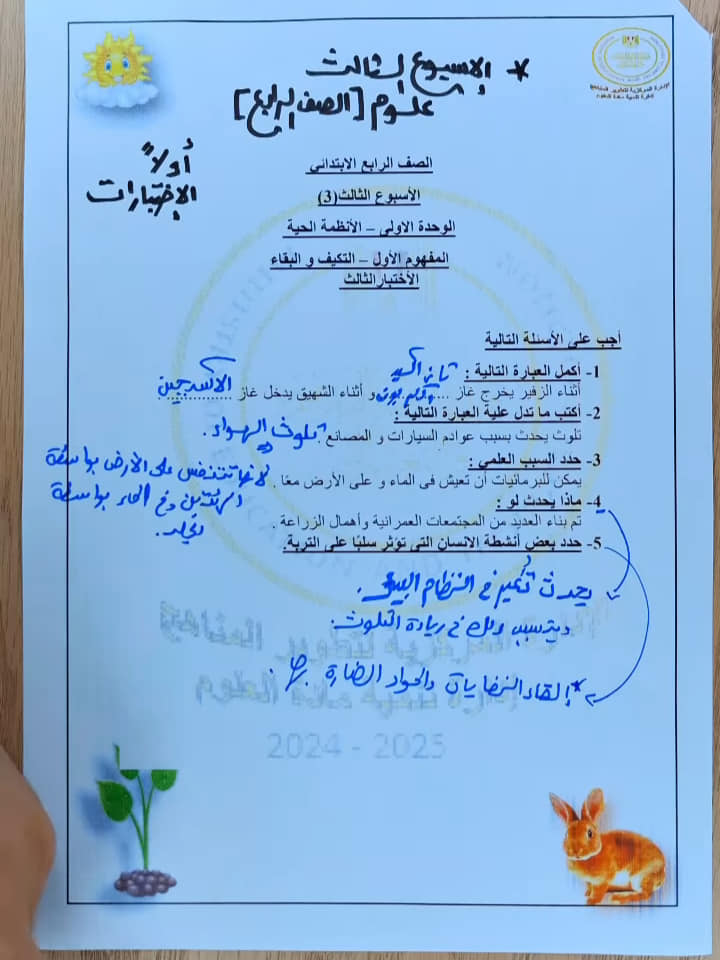 * الإسبوع الثالث
علوم [الصف الرابع]
أولاً
الإختبارات
الصف الرابع الابتدائي
الأسبوع الثالث(3)
الوحدة الاولى – الأنظمة الحية
المفهوم الأول – التكيف و البقاء
الأختبار الثالث
أجب على الأسئلة التالية
1- أكمل العبارة التالية :
أثناء الزفير يخرج غاز .... ثاني أكسيد الكربون و أثناء الشهيق يدخل غاز الاكسجين
2- أكتب ما تدل علية العبارة التالية :
تلوث يحدث بسبب عوادم السيارات و المصانع . تلوث الهواء .
3- حدد السبب العلمي :
يمكن للبرمائيات أن تعيش فى الماء و على الأرض معًا . لأنها تتنفس على الأرض بواسطة
الرئتين وفي الماء بواسطة
الجلد .
4- ماذا يحدث لو :
تم بناء العديد من المجتمعات العمرانية وأهمال الزراعة .
5- حدد بعض أنشطة الانسان التى تؤثر سلبًا على التربة.
يحدث تغير في النظام البيئي .
ويتسبب ذلك في زيادة التلوث .
* إلقاء النفايات والمواد الضارة بها .
2024 - 2025